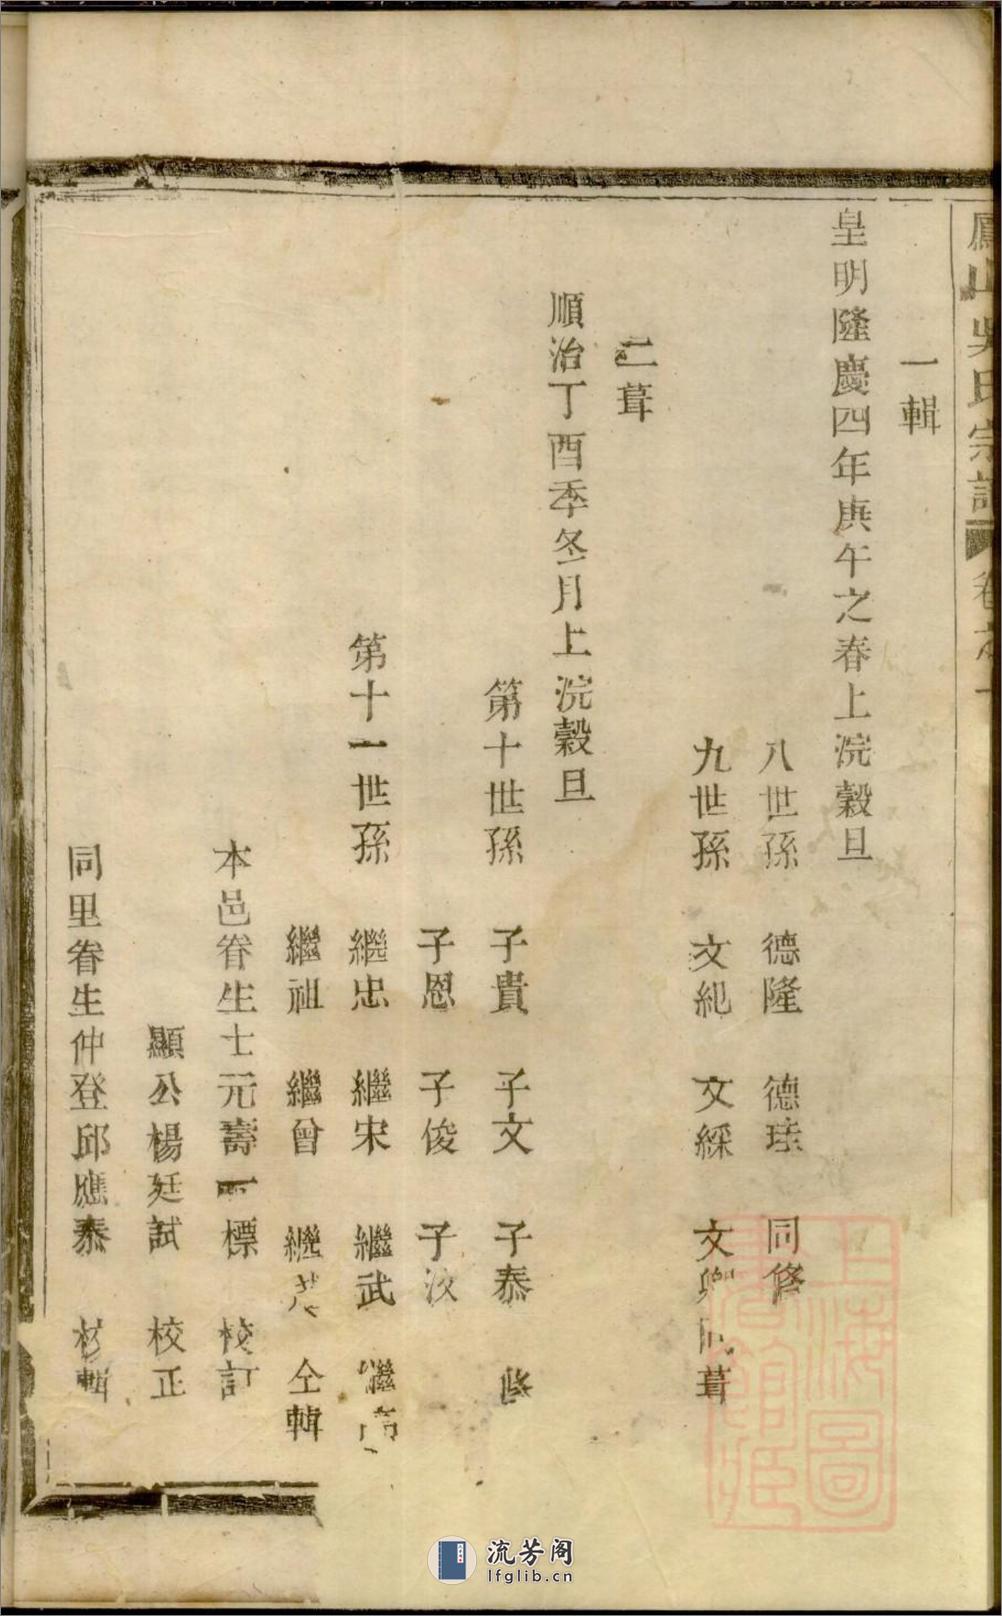 鳳山吳氏宗譜 卷之
一輯
皇明隆慶四年庚午之春上浣穀旦
八世孫 德隆 德珪 同修
九世孫 文紀 文綵 文卿 同葺
二葺
順治丁酉季冬月上浣穀旦
第十世孫 子貴 子文 子泰 修
子恩 子俊
第十一世孫 繼忠 繼宋 繼武 繼
繼祖 繼曾 繼 仝輯
本邑眷生士元壽 標 校訂
顯公楊廷試 校正
同里眷生仲登邱應泰 輯
上海圖書館藏
流芳阁
lfglib.cn